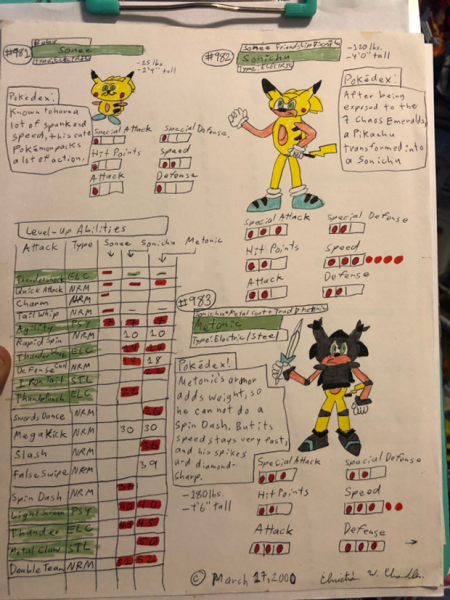 #981
Baby
Sonee
Type: ELECTRIC
-25 lbs.
-2'4" tall
Pokédex:
Known to have a
lot of spunk and
speed, this cute
Pokémon packs
a lot of action.
Special Attack
Special Defense
Hit Points
Speed
Attack
Defense
#982
Sonee Friendship
Sonichu
Type: ELECTRIC
-120 lbs.
-4'0" tall
Pokédex:
After being
exposed to the
7 Chaos Emeralds,
a Pikachu
transformed into
a Sonichu
Special Attack
Special Defense
Hit Points
Speed
Attack
Defense
Level-Up Abilities
Attack Type Sonee Sonichu Metonic
Thundershock ELC
Quick Attack NRM
Charm NRM
Tail Whip NRM
Agility PSY
Rapid Spin NRM 10 10
Thunder ELC
Defense Curl NRM 18
Iron Tail STL
Thunderpunch ELC
Swords Dance NRM
Mega Kick NRM 30 30
Slash NRM
False Swipe NRM 39
Spin Dash NRM
Light Screen PSY
Thunder ELC
Metal Claw STL
Double Team NRM
#983
Sonichu + Metal Coat + Trade
Metonic
Type: Electric/Steel
Pokédex:
Metonic's armor
adds weight, so
he can not do a
Spin Dash. But its
speed stays very fast,
and his spikes
are diamond-
sharp.
-180 lbs.
-4'6" tall
Special Attack
Special Defense
Hit Points
Speed
Attack
Defense
© March 17, 2000
Christian W. Chandler